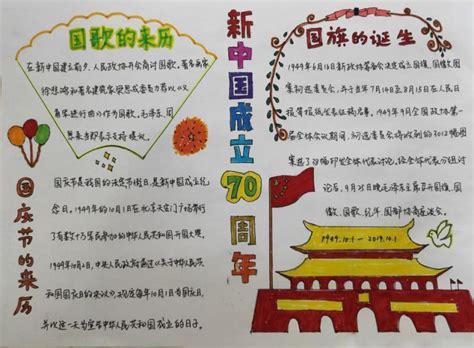 国歌的来历
在新中国建立前夕,人民政协开会商讨国歌,著名画家
徐悲鸿和著名建筑家梁思成
勇军进行曲》作为国歌,毛泽东、周
恩来当即表示支持提议。
国庆节的来历
国庆节是我国的法定节假日,是新中国成立纪
念日。1949年的10月1日在北京天安门广场举行
了有数十万军民参加的中华人民共和国开国大典。
1949年10月2日,中央人民政府通过《关于中华人民共
和国国庆日的决议》,规定每年10月1日为国庆日,
并以这一天为宣告中华人民共和国成立的日子。
新中国成立70周年
国旗的诞生
1949年6月16日新政协筹备会决定成立国旗、国徽图
案初选委员会,并于当年7月14日至8月15日在人民日
报等报纸发表征稿启事。1949年9月全国政协第
一届全体会议期间,初选委员会将收到的3012幅图
案选了38幅印发全体代表讨论,经全体代表分组讨
论后,9月25日晚毛泽东主席召开国旗、国
徽、国歌、纪年、国都协商座谈会。
1949.10.1—2019.10.1